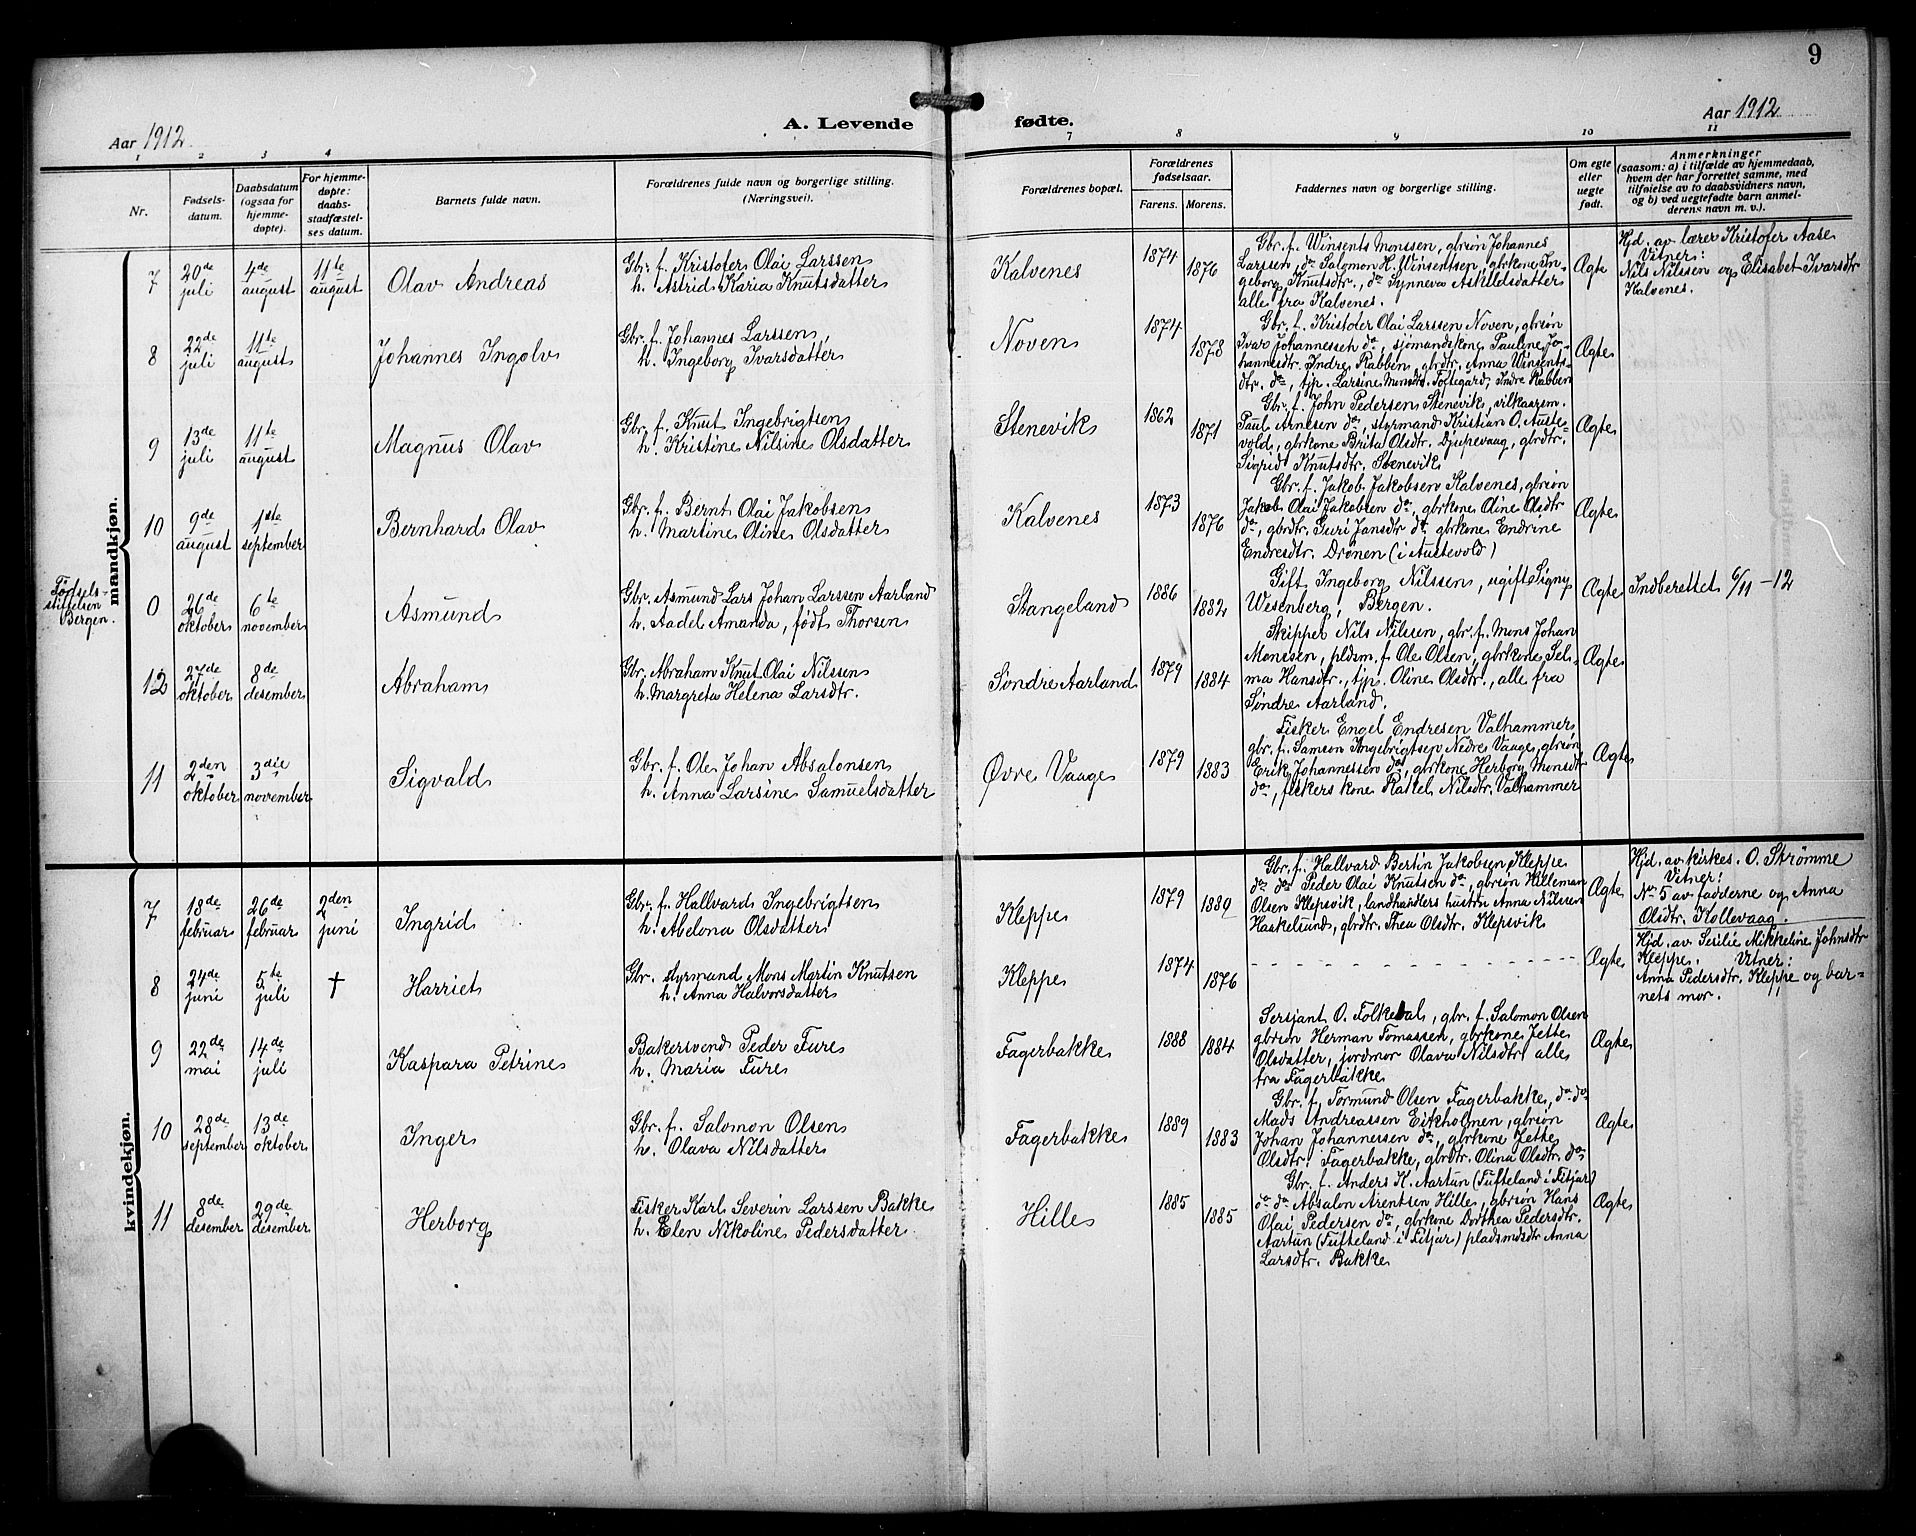 9
Aar 1912
A. Levende fødte.
Aar 1912
1 2 3 4 7 8 9 10 11
Nr.
Fødsels-
datum.
Daabsdatum
(ogsaa for
hjemme-
døpte).
For hjemme-
døpte:
daabs-
stadfæstel-
ses datum.
Barnets fulde navn.
Forældrenes fulde navn og borgerlige stilling.
(Næringsvei).
Forældrenes bopæl.
Forældrenes
fødselsaar.
Farens. Morens.
Faddernes navn og borgerlige stilling.
Om egte
eller
uegte
født.
Anmerkninger
(saasom: a) i tilfælde av hjemmedaab,
hvem der har forrettet samme, med
tilføielse av to daabsvidners navn,
og b) ved uegtefødte barn anmel-
derens navn m. v.).
mandkjøn.
7
20de
juli
4de
august
11te
august
Olav Andreas
Gbr. f. Kristofer Olai Larssen
h. Astrid Karia Knutsdatter
Kalvenes
1874
1876
Gbr. f. Winsents Monssen, gbrsøn Johannes
Larssen, do Salomon H. Winsentsen, gbrkone In-
geborg Knutsdtr., do Synneva Askildsdatter
alle fra Kalvenes.
Ægte
Hjd. av lærer Kristofer Aase
Vitner:
Nils Nilssen og Elisabet Ivarsdtr
Kalvenes.
8
22de
juli
11te
august
Johannes Ingolv
Gbr. f. Johannes Larssen,
h. Ingeborg Ivarsdatter
Noven
1874
1878
Gbr. f. Kristofer Olai Larssen Noven, gbrsøn
Ivar Johannessen do, sjømandskone Pauline Jo-
hannesdtr. Indre Rabben, gbrdtr. Anna Winsents-
dtr. do, tjp. Larsine Monsdtr. Toftegård, Indre Rabben
Ægte
9
13de
juli
11te
august
Magnus Olav
Gbr. f. Knut Ingebrigtsen
h. Kristine Nilsine Olsdatter
Stenevik
1862
1871
Gbr. f. John Pedersen Stenevik, vilkaarsm.
Paul Arnesen do, styrmand Kristian O. Auste-
vold, gbrkone Brita Olsdtr. Djupevaag, gbrdtr.
Sigrid Knutsdtr. Stenevik
Ægte
10
9de
august
1ste
september
Bernhard Olav
Gbr. f. Bernt Olai Jakobsen
h. Martine Oline Olsdatter
Kalvenes
1873
1876
Gbr. f. Jakob Jakobsen Kalvenes, gbrsøn
Jakob Olai Jakobsen do, gbrkone Oline Olsdtr
do, gbrdtr. Guri Jansdtr do, gbrkone Endrine
Endresdtr. Drønen (i Austevold)
Ægte
Fødsels-
stiftelsen
Bergen.
0
26de
oktober
6te
november
Asmund
Gbr. Asmund Lars Johan Larssen Aarland
h. Aadel Amanda, født Thorsen
Stangeland
1886
1882
Gift Ingeborg Nilssen, ugift Signy
Wesenberg, Bergen.
Ægte
Indberettet 6/11 -12
12
27de
oktober
8de
desember
Abraham
Gbr. Abraham Knut Olai Nilssen
h. Margreta Helena Larsdtr.
Søndre Aarland
1879
1884
Skipper Nils Nilssen, gbr. f. Mons Johan
Monssen, pldsm. f. Ole Olsen, gbrkone Sel-
ma Hansdtr., tjp. Oline Olsdtr., alle fra
Søndre Aarland.
Ægte
11
2den
oktober
3die
november
Sigvald
Gbr. f. Ole Johan Absalonsen
h. Anna Larsine Samuelsdatter
Øvre Vaage
1879
1883
Fisker Engel Endresen Valhammer,
gbr. f. Samson Ingebrigtsen Nedre Vaage, gbrsøn
Erik Johannessen do, gbrkone Herborg Monsdtr
do, fiskers kone Rakel Nilsdtr. Valhammer
Ægte
kvindekjøn.
7
18de
februar
26de
februar
2den
juni
Ingrid
Gbr. f. Hallvard Ingebrigtsen
h. Abelona Olsdatter
Kleppe
1879
1889
Gbr. f. Hallvard Bertin Jakobsen Kleppe
do do Peder Olai Knutsen do, gbrsøn Hilleman
Olsen Klepsvik, landhandlers hustru Anna Nilssen
Haakelsund, gbrdtr. Thea Olsdtr. Klepsvik
Ægte
Hjd. av kirkes. O. Strømme
Vitner:
No 5 av fadderne og Anna
Olsdtr. Kollevaag.
8
24de
juni
5te
juli
†
Harriet
Gbr. styrmand Mons Martin Knutsen
h. Anna Halvorsdatter
Kleppe
1874
1876
Ægte
Hjd. av Sesilie Mikkeline Johnsdtr
Kleppe. Vitner:
Anna Pedersdtr. Kleppe og bar-
nets mor.
9
22de
mai
14de
juli
Kaspara Petrine
Bakersvend Peder Fure
h. Maria Fure
Fagerbakke
1888
1884
Sersjant O. Folkedal, gbr. f. Salomon Olsen
gbrsøn Herman Tomassen, gbrkone Jette
Olsdatter, jordmor Olava Nilsdtr. alle
fra Fagerbakke
Ægte
10
28de
september
13de
oktober
Inger
Gbr. f. Salomon Olsen
h. Olava Nilsdatter
Fagerbakke
1889
1883
Gbr. f. Tormund Olsen Fagerbakke, do do
Mads Andreassen Eikholmen, gbrsøn
Johan Johannessen do, gbrkone Jette
Olsdtr. Fagerbakke, gbrdtr. Olina Olsdtr. do
Ægte
11
8de
desember
29de
desember
Herborg
Fisker Karl Severin Larssen Bakke
h. Elen Nikoline Pedersdatter
Hille
1885
1885
Gbr. f. Anders K. Aartun (Tufteland i Fitjar)
do do Absalon Arentsen Hille, gbrsøn Hans
Olai Pedersen do, gbrkone Dorthea Pedersdtr.
Aartun (Tufteland i Fitjar) pladsmdsdtr Anna
Larsdtr. Bakke
Ægte